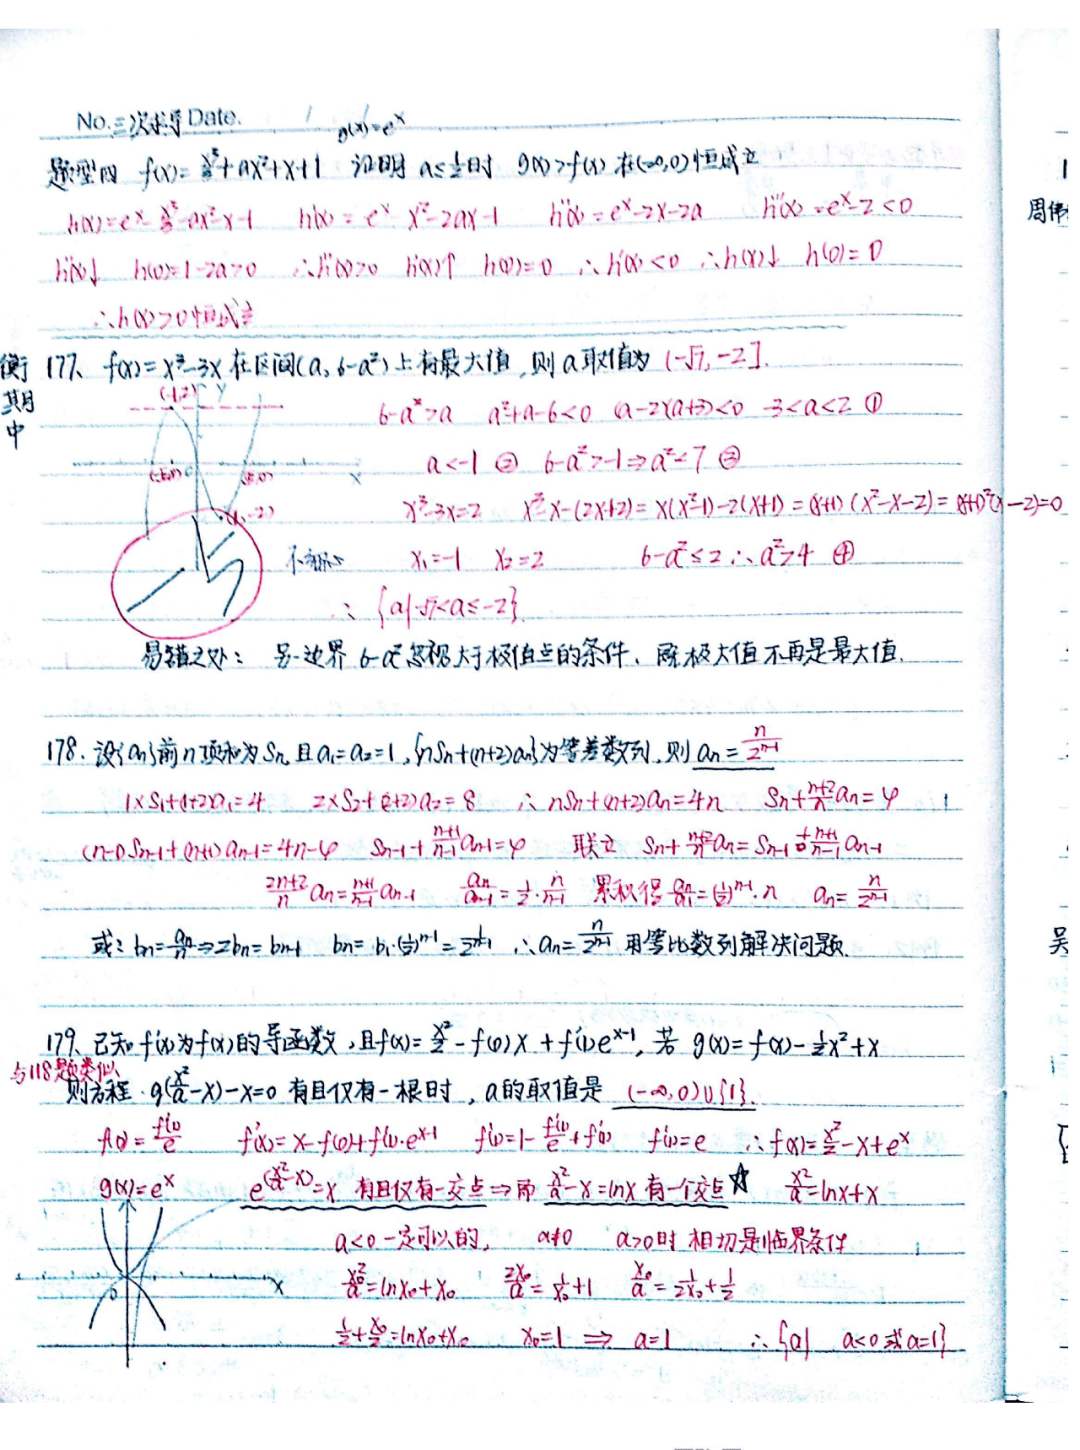 No. 三次求导 Date.
g(x)=e^x
题型四 f(x)=x³/3+ax²+x+1 证明 a≤1/2时 g(x)>f(x) 在(-∞,0)恒成立
h(x)=e^x-x³/3-ax²-x-1 h'(x)=e^x-x²-2ax-1 h''(x)=e^x-2x-2a h'''(x)=e^x-2<0
h''(x)↓ h''(0)=1-2a>0 ∴h''(x)>0 h'(x)↑ h'(0)=0 ∴h'(x)<0 ∴h(x)↓ h(0)=0
∴h(x)>0恒成立
177、f(x)=x³-3x 在区间(a,6-a²)上有最大值,则a取值为 (-√7,-2].
(-1,2) y
6-a²>a a²+a-6<0 (a-2)(a+3)<0 -3<a<2 ①
a<-1 ② 6-a²>-1⇒a²<7 ③
0 x
x³-3x=2 x³-x-(2x+2)=x(x²-1)-2(x+1)=(x+1)(x²-x-2)=(x+1)²(x-2)=0
(1,-2)
x₁=-1 x₂=2 6-a²≤2∴a²≥4 ④
∴{a|-√7<a≤-2}
易错之处: 另一边界 6-a²忽视大于极值点的条件、 极大值不再是最大值.
178. 设{an}前n项和为Sn,且a₁=a₂=1,{nSn+(n+2)an}为等差数列,则 an=n/2^(n-1)
1×S₁+(1+2)a₁=4 2×S₂+(2+2)a₂=8 ∴nSn+(n+2)an=4n Sn+(n+2)/n an=4
(n-1)Sn-1+(n+1)an-1=4n-4 Sn-1+(n+1)/(n-1) an-1=4 联立 Sn+(n+2)/n an=Sn-1+(n+1)/(n-1) an-1
(2n+2)/n an=(n+1)/(n-1) an-1 an/an-1=1/2·n/(n-1) 累积得 an/a₁=(1/2)^(n-1)·n an=n/2^(n-1)
或: bn=an/n⇒2bn=bn-1 bn=b₁·(1/2)^(n-1)=1/2^(n-1) ∴an=n/2^(n-1) 用等比数列解决问题.
179、已知f'(x)为f(x)的导函数,且f(x)=x²/2-f(0)x+f'(1)e^(x-1),若 g(x)=f(x)-1/2x²+x
与118题类似
则方程 g(x²/a-x)-x=0 有且仅有一根时,a的取值是 (-∞,0)∪{1}.
f(0)=f'(1)/e f'(x)=x-f(0)+f'(1)·e^(x-1) f'(1)=1-f'(1)/e+f'(1) f'(1)=e ∴f(x)=x²/2-x+e^x
g(x)=e^x e^(x²/a-x)=x 有且仅有一交点⇒即 x²/a-x=lnx 有一个交点☆ x²/a=lnx+x
a<0一定可以的, a≠0 a>0时 相切是临界条件
0 x
x₀²/a=lnx₀+x₀ 2x₀/a=1/x₀+1 x₀/a=1/2x₀+1/2
1/2+x₀/2=lnx₀+x₀ x₀=1 ⇒ a=1 ∴{a| a<0或a=1}
衡
中
周
吴